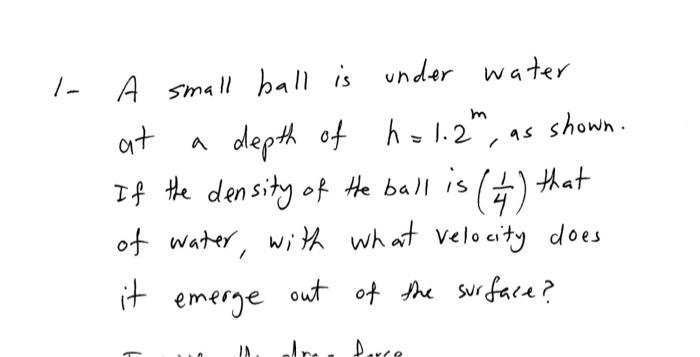 1- A small ball is under water
at a depth of h = 1.2ᵐ, as shown.
If the density of the ball is (1/4) that
of water, with what velocity does
it emerge out of the surface?